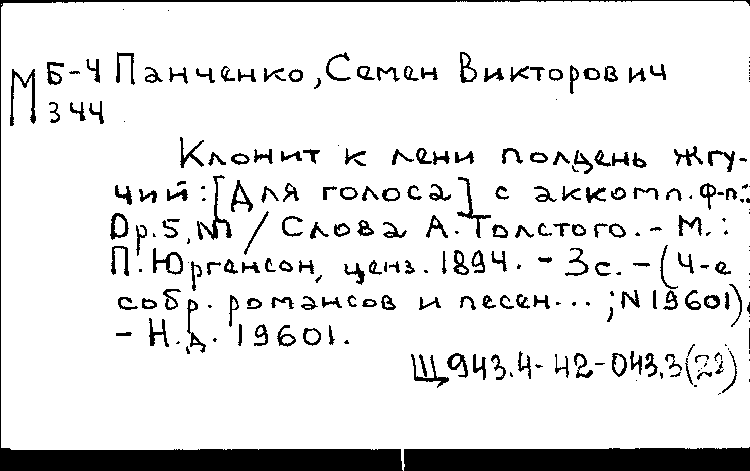 М Б-4 Панченко, Семен Викторович
З 44
Клонит к лени полдень жгу-
чий: [Для голоса] с аккомп. ф-п.:
Op. 5, N1 / Слова А. Толстого. - М.:
П. Юргенсон, ценз. 1894. - 3 с. - (4-е
собр. романсов и песен...; N 19601).
- Н.д. 19601.
Щ943.4-42-043.3(22)